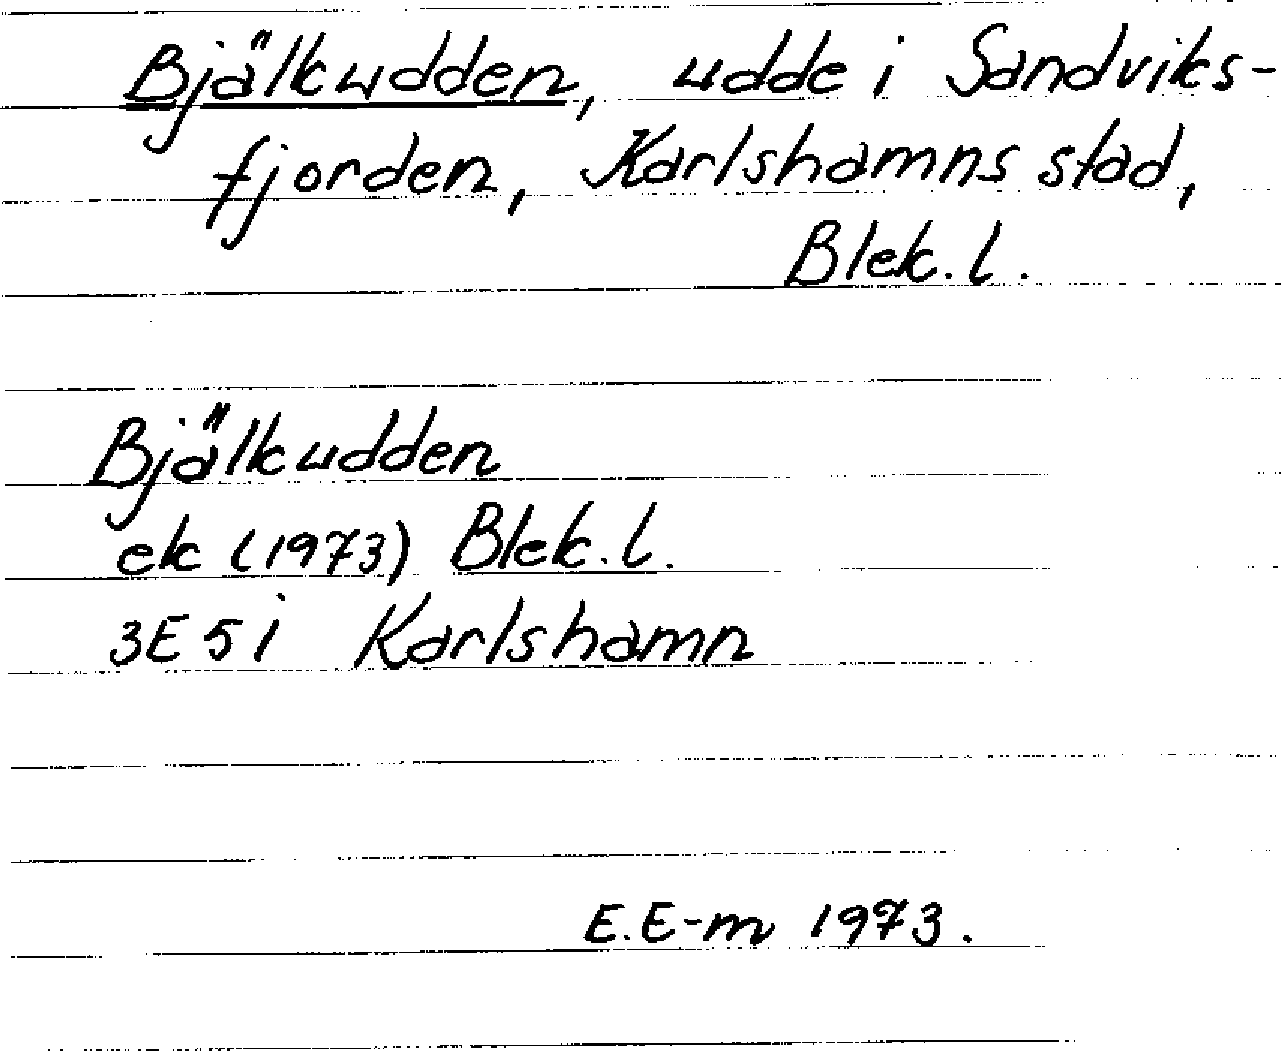 Bjälkudden, udde i Sandviks-
fjorden, Karlshamns stad,
Blek. l.
Bjälkudden
ek (1973) Blek. l.
3E 5i Karlshamn
E.E-m 1973.